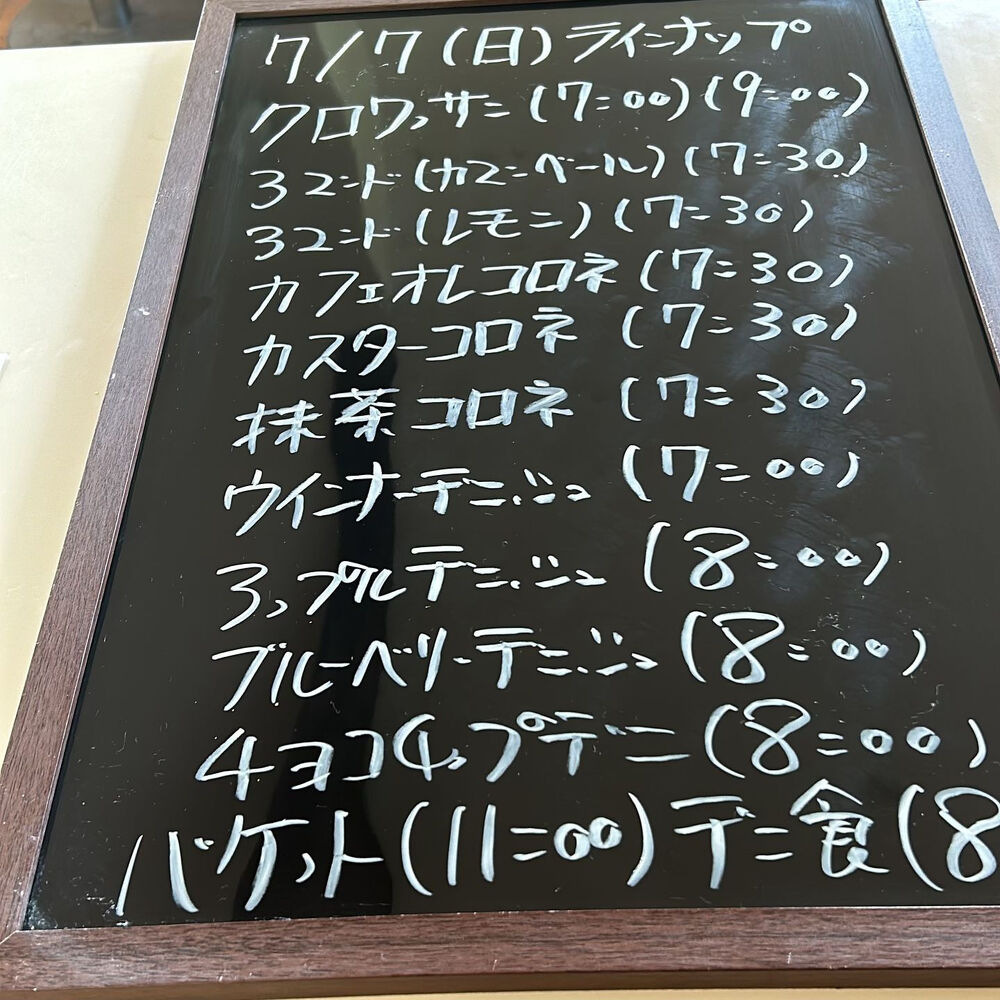 7/7(日)ラインナップ
クロワッサン(7:00)(9:00)
アマンド(カマンベール)(7:30)
アマンド(レモン)(7:30)
カフェオレコロネ(7:30)
カスターコロネ(7:30)
抹茶コロネ(7:30)
ウインナーデニッシュ(7:00)
アップルデニッシュ(8:00)
ブルーベリーデニッシュ(8:00)
チョコチップデニ(8:00)
バケット(11:00)デニ食(8